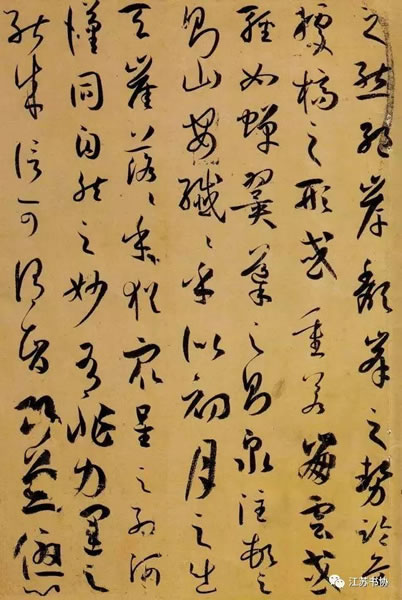 之態絕岸頹峯之勢臨危
據槁之形或重若崩雲或
輕如蟬翼導之則泉注頓之
則山安纖〻乎似初月之出
天崖落〻乎猶眾星之列河
漢同自然之妙有非力運之
能成信可謂智巧兼優心
江苏书协